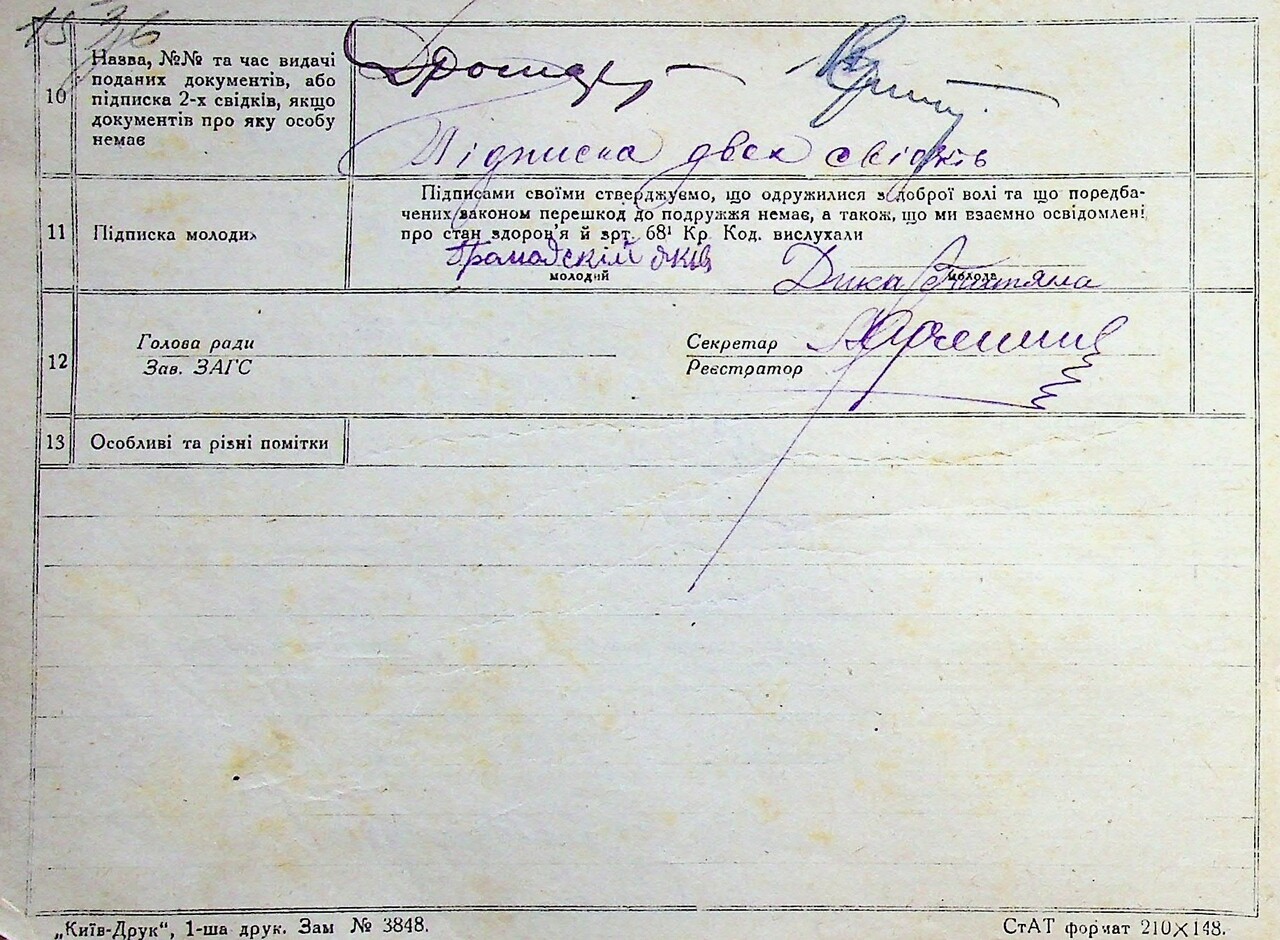 10
Назва, №№ та час видачі
поданих документів, або
підписка 2-х свідків, якщо
документів про яку особу
немає
Підписка двох свідків
11
Підписка молодих
Підписами своїми стверджуємо, що одружилися з доброї волі та що передба-
чених законом перешкод до подружжя немає, а також, що ми взаємно освідомлені
про стан здоров'я й арт. 68¹ Кр. Код. вислухали
Громадскій Яків
Дика Татяна
молодий
молода
12
Голова ради
Зав. ЗАГС
Секретар
Реєстратор
13
Особливі та різні помітки
„Київ-Друк“, 1-ша друк. Зам № 3848.
СтАТ формат 210×148.